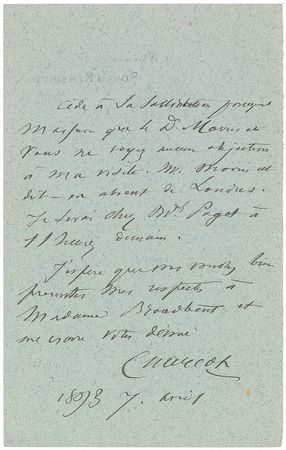 cède à sa sollicitation
M'assure que le Dr. Morris et
Vous ne voyez aucun objection
à ma visite. M. Morris est
dit-on absent de Londres.
Je serai chez Mrs Paget à
11 heures demain.
J'espère que vous voudrez bien
présenter mes respects à
Madame Broadbent et
me croire votre dévoué
Charcot
1893 7. avril